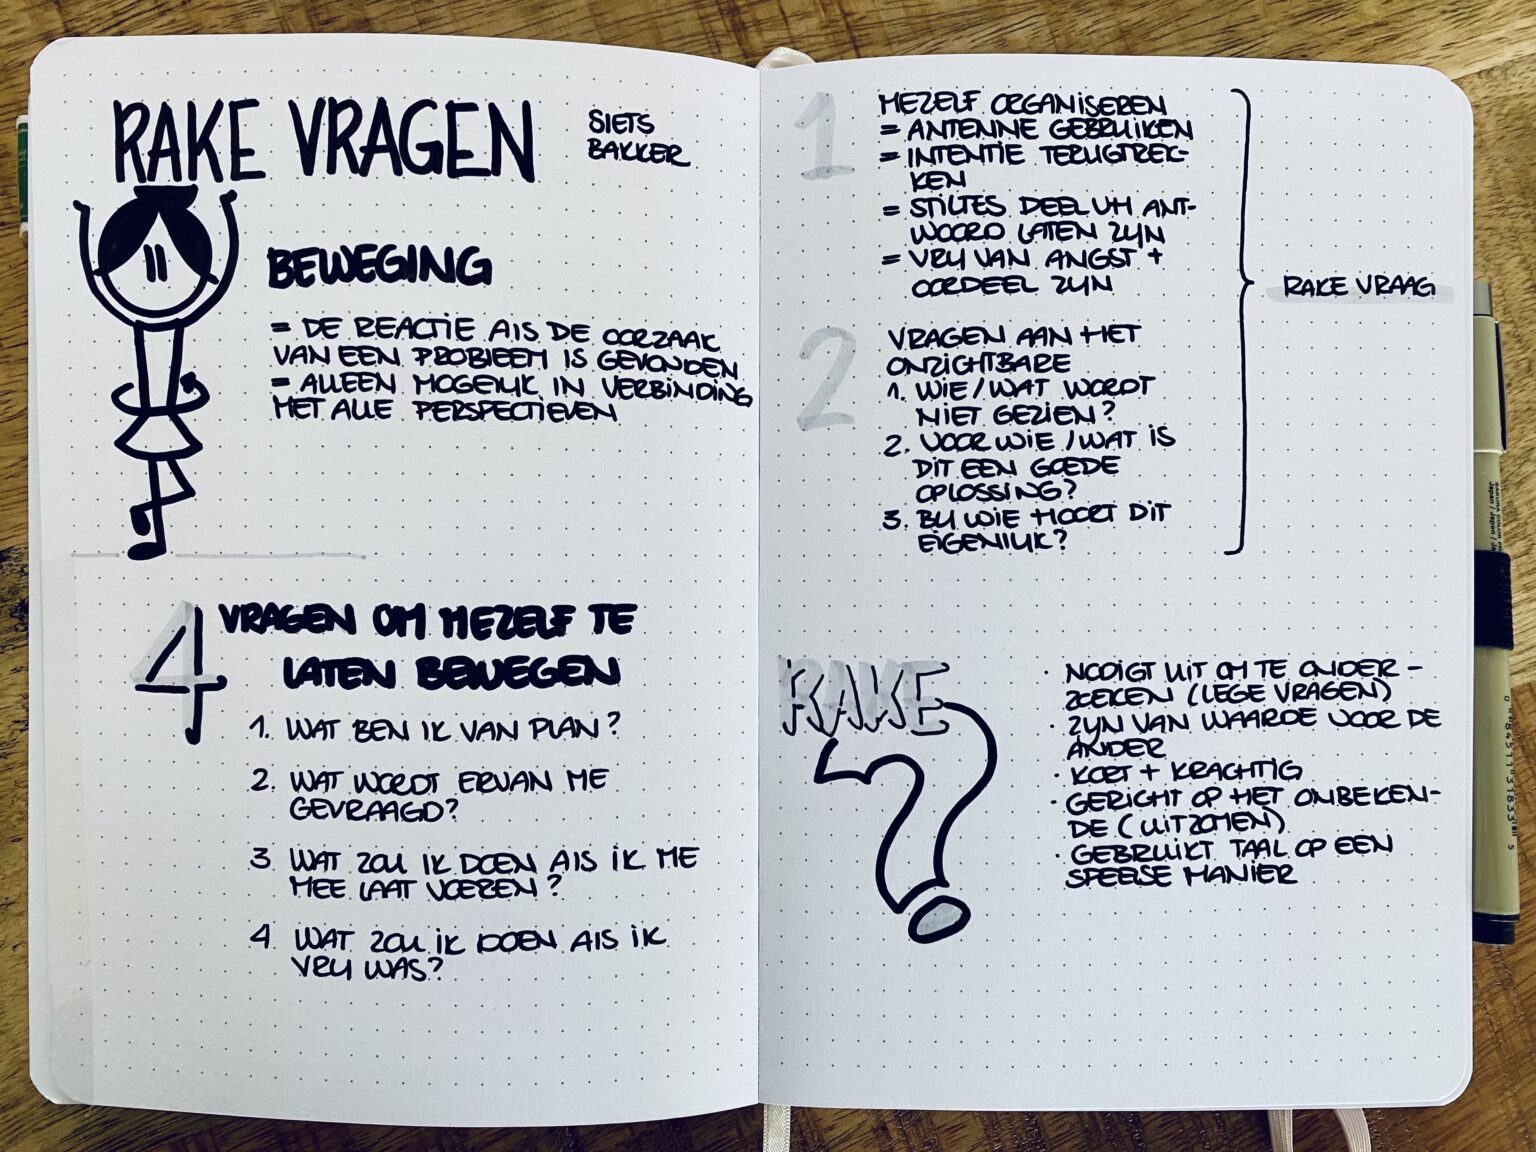 RAKE VRAGEN
SIETS
BAKKER
BEWEGING
= DE REACTIE ALS DE OORZAAK
VAN EEN PROBLEEM IS GEVONDEN
= ALLEEN MOGELIJK IN VERBINDING
MET ALLE PERSPECTIEVEN
4 VRAGEN OM MEZELF TE
LATEN BEWEGEN
1. WAT BEN IK VAN PLAN?
2. WAT WORDT ERVAN ME
GEVRAAGD?
3 WAT ZOU IK DOEN ALS IK ME
MEE LAAT VOEREN?
4 WAT ZOU IK DOEN ALS IK
VRIJ WAS?
1 MEZELF ORGANISEREN
= ANTENNE GEBRUIKEN
= INTENTIE TERUGTREK-
KEN
= STILTES DEEL VH ANT-
WOORD LATEN ZIJN
= VRIJ VAN ANGST +
OORDEEL ZIJN
2 VRAGEN AAN HET
ONZICHTBARE
1. WIE/WAT WORDT
NIET GEZIEN?
2. VOOR WIE/WAT IS
DIT EEN GOEDE
OPLOSSING?
3. BIJ WIE HOORT DIT
EIGENLIJK?
RAKE VRAAG
RAKE ?
· NODIGT UIT OM TE ONDER-
ZOEKEN (LEGE VRAGEN)
· ZIJN VAN WAARDE VOOR DE
ANDER
· KORT + KRACHTIG
· GERICHT OP HET ONBEKEN-
DE (UITZOMEN)
· GEBRUIKT TAAL OP EEN
SPEELSE MANIER